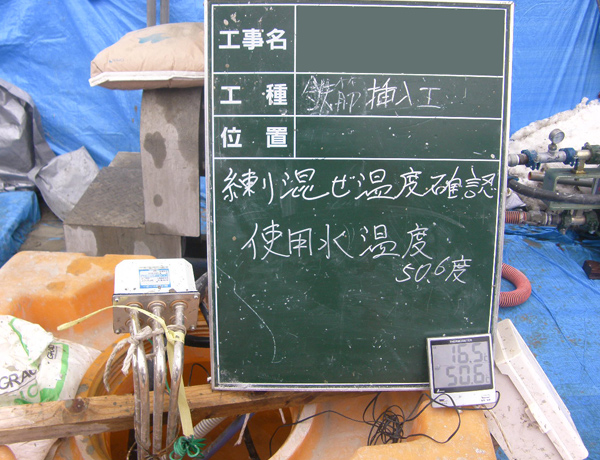 工事名
工種 鉄筋挿入工
位置
練り混ぜ温度確認
使用水温度
50.6度
16.5
50.6
GRA